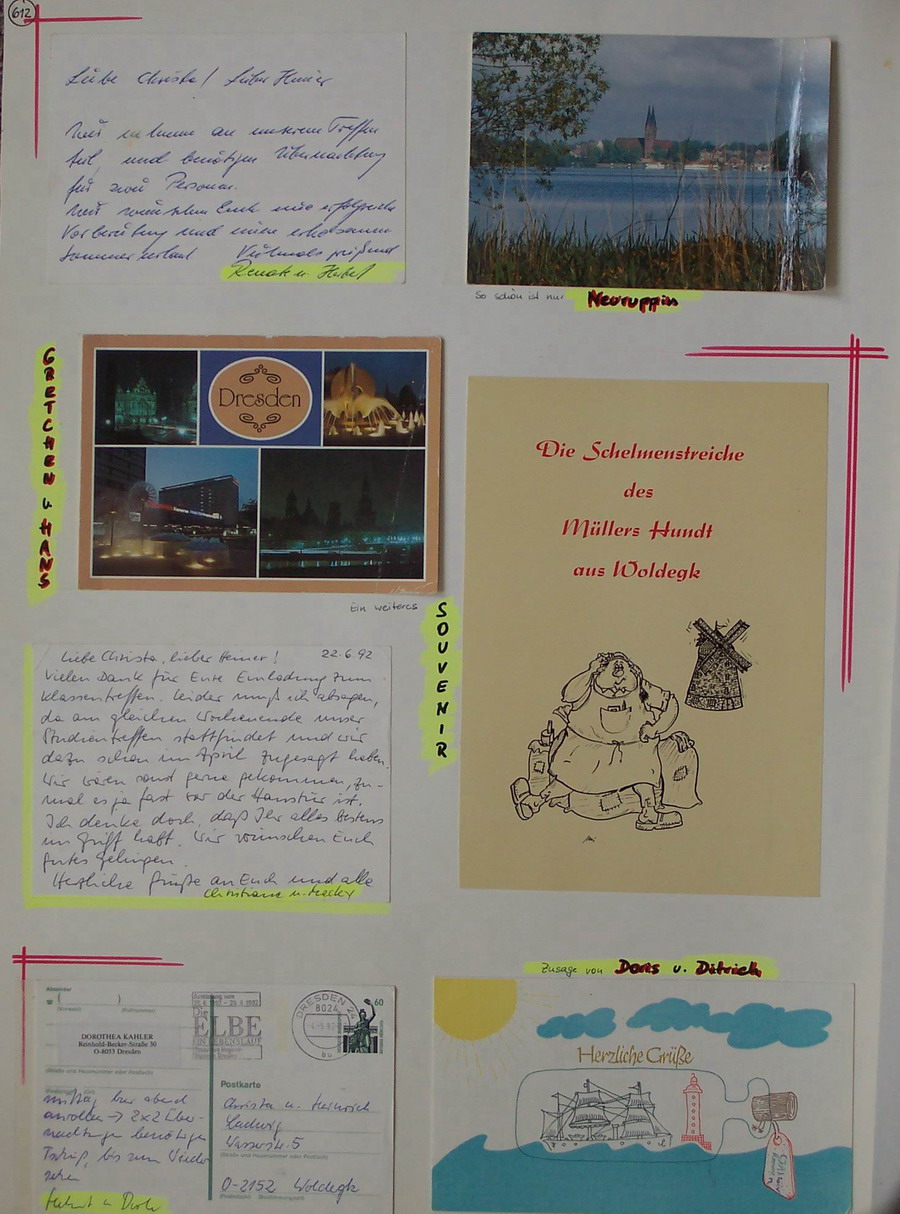 612
Liebe Christa! Lieber Heiner
Wir nehmen an unserem Treffen
teil und benötigen Übernachtung
für zwei Personen.
Wir wünschen Euch eine erfolgreiche
Vorbereitung und einen erholsamen
Sommerurlaub Vielmals grüßend
Renate u.
So schön ist nur Neuruppin
GRETCHEN u HANS
Dresden
Ein weiteres
SOUVENIR
Die Schelmenstreiche
des
Müllers Hundt
aus Woldegk
Liebe Christa, lieber Heiner! 22.6.92
Vielen Dank für Eure Einladung zum
Klassentreffen. Leider muß ich absagen,
da am gleichen Wochenende unser
Studientreffen stattfindet und wir
dazu schon im April zugesagt haben.
Wir wären sonst gerne gekommen, zu-
mal es ja fast vor der Haustür ist.
Ich denke doch, daß Ihr alles bestens
im Griff habt. Wir wünschen Euch
gutes Gelingen.
Herzliche Grüße an Euch und alle
Christiane u.
Zusage von Doris u. Dietrich
Absender
DOROTHEA KAHLER
Reinhold-Becker-Straße 30
O-8053 Dresden
(Straße und Hausnummer oder Postfach)
Die
ELBE
EIN LEBENSLAUF
DRESDEN 24
8024
60
Postkarte
Christa u. Heinrich
Ludwig
Wasserstr. 5
(Straße und Hausnummer oder Postfach)
O-2152 Woldegk
mittag bzw abend
anrollen → 2x2 Über-
nachtungen benötigen
Tschüß, bis zum Wieder
sehen
Helmut u. Doro
Herzliche Grüße